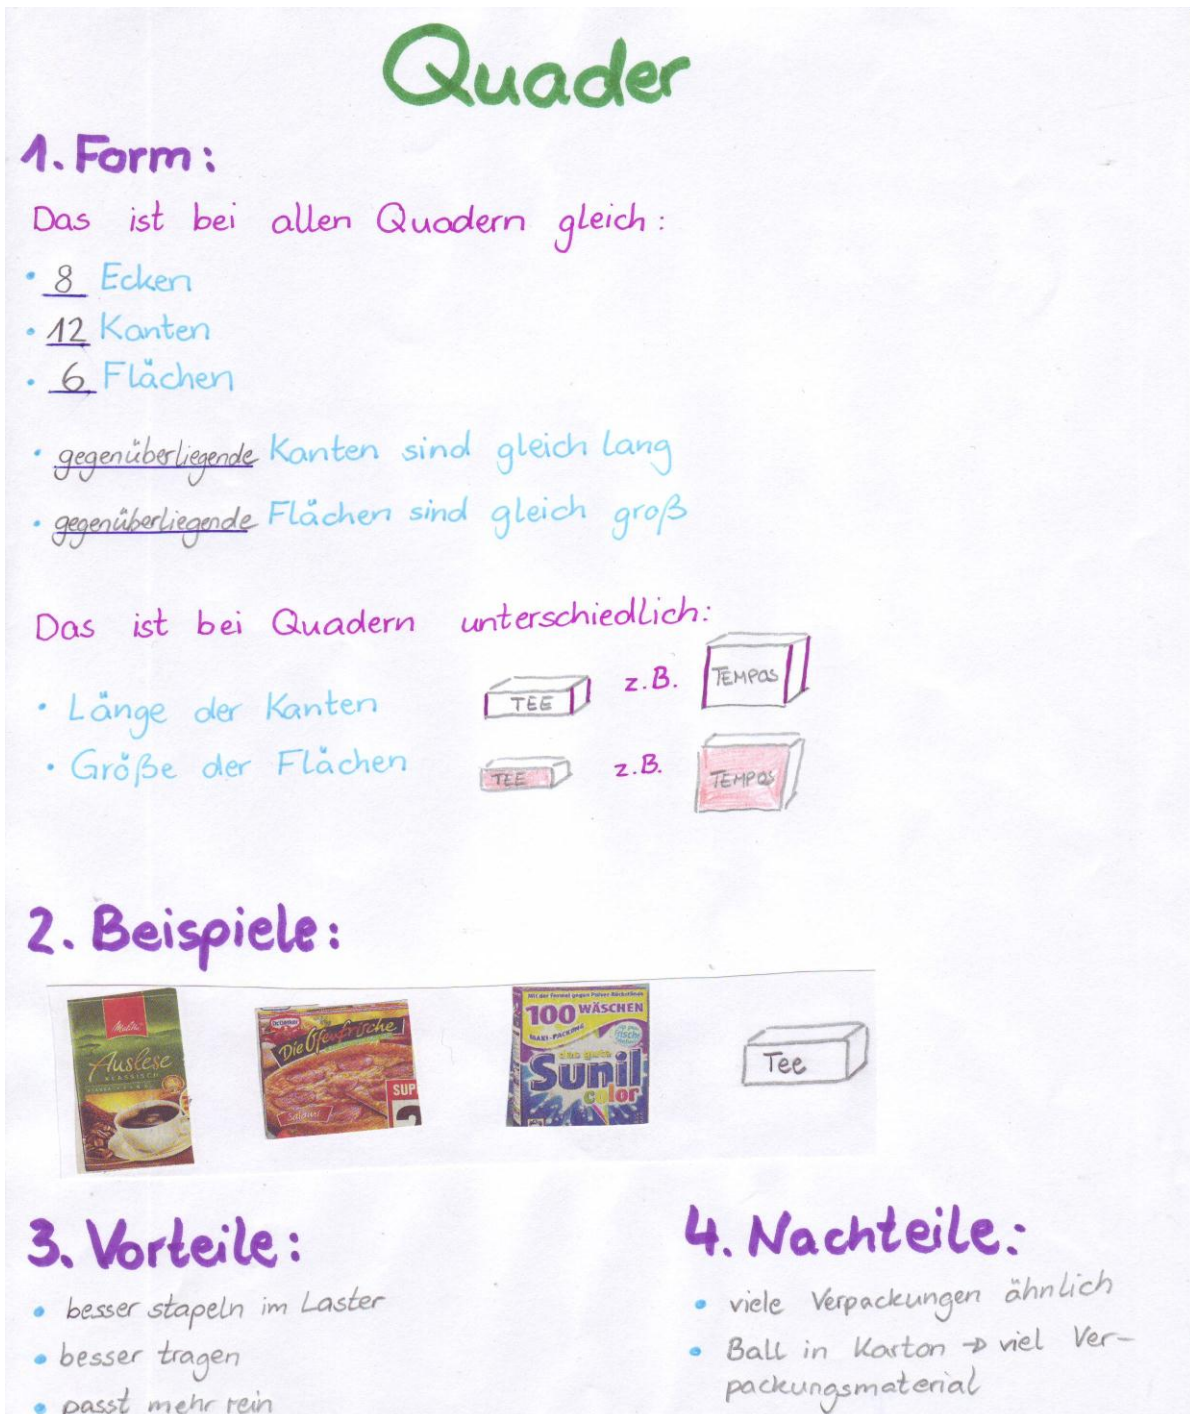 Quader
1. Form:
Das ist bei allen Quadern gleich:
• 8 Ecken
• 12 Kanten
• 6 Flächen
• gegenüberliegende Kanten sind gleich lang
• gegenüberliegende Flächen sind gleich groß
Das ist bei Quadern unterschiedlich:
• Länge der Kanten
TEE z.B. TEMPOS
• Größe der Flächen
TEE z.B. TEMPOS
2. Beispiele:
Melitta
Auslese
KLASSISCH
Dr.Oetker
Die Ofenfrische
Salami
SUP
2
Mit der Formel gegen Pulver-Rückstände
100 WÄSCHEN
MAXI-PACKUNG
das gute
Sunil
color
Tee
3. Vorteile:
• besser stapeln im Laster
• besser tragen
• passt mehr rein
4. Nachteile:
• viele Verpackungen ähnlich
• Ball in Karton → viel Ver-
packungsmaterial